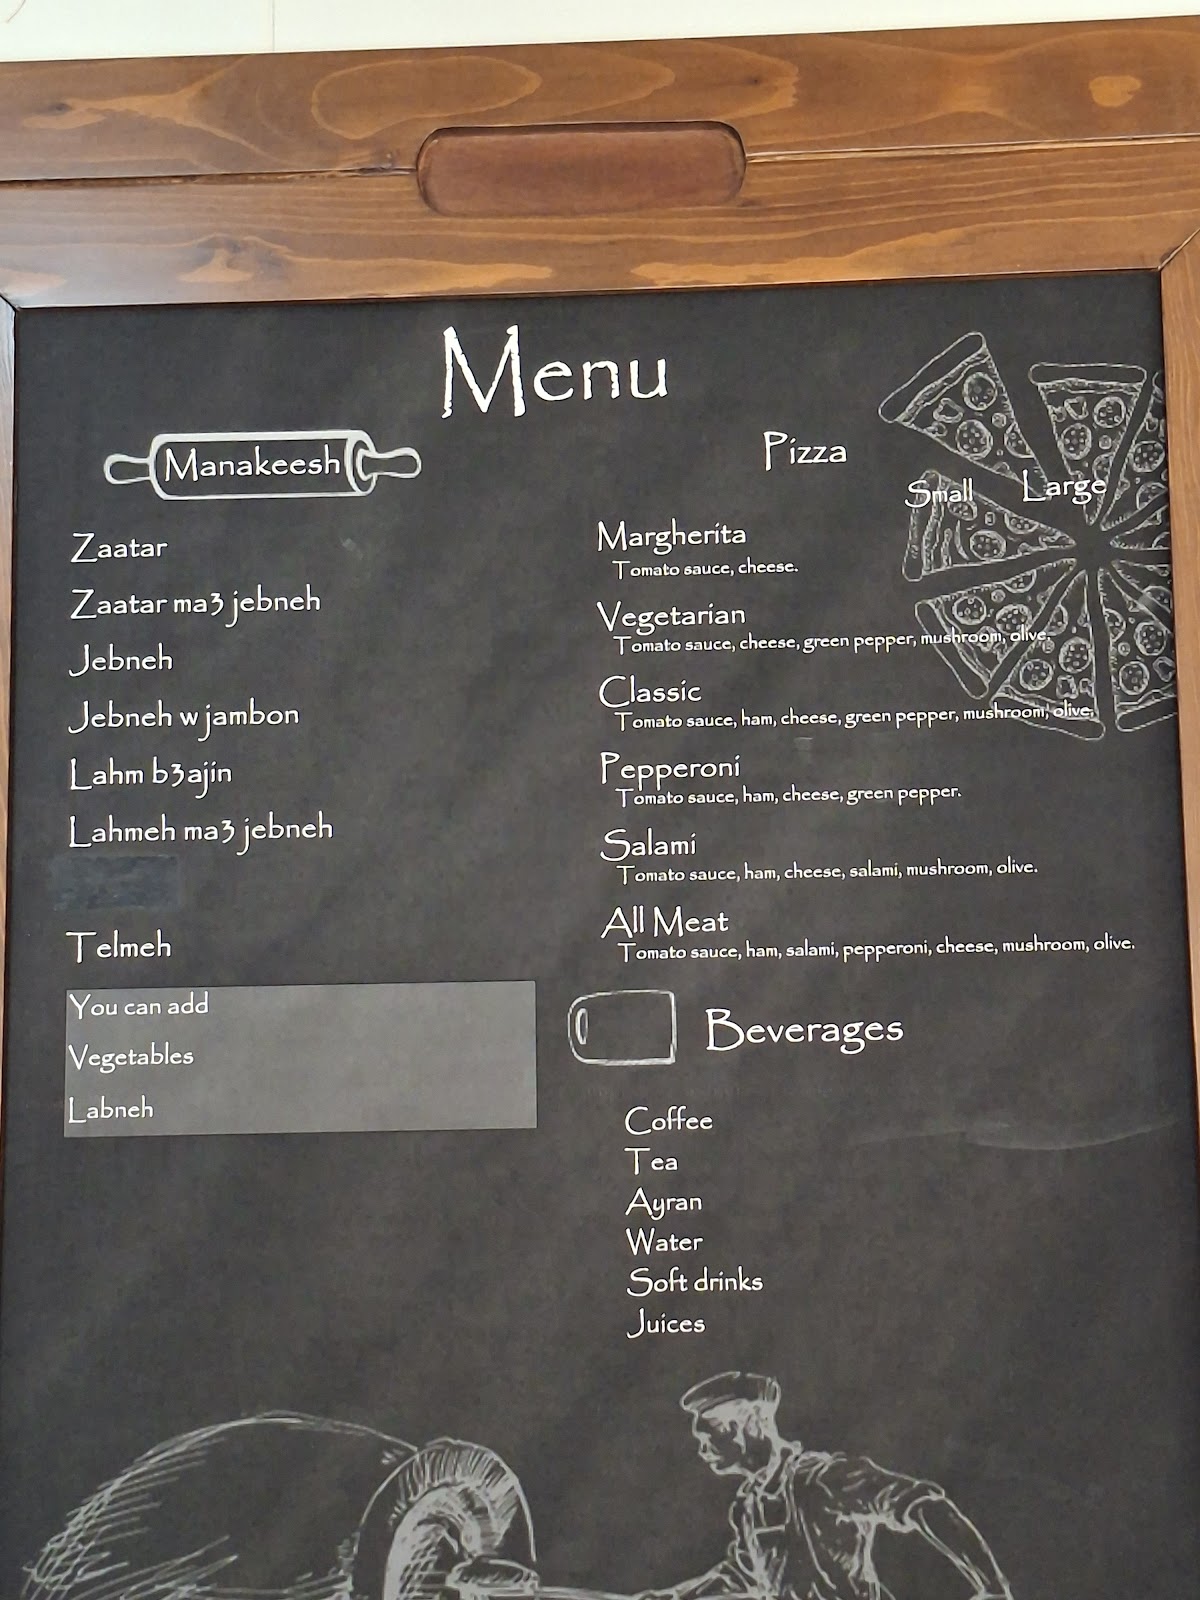 Menu
Manakeesh
Zaatar
Zaatar ma3 jebneh
Jebneh
Jebneh w jambon
Lahm b3ajin
Lahmeh ma3 jebneh
Telmeh
You can add
Vegetables
Labneh
Pizza
Small Large
Margherita
Tomato sauce, cheese.
Vegetarian
Tomato sauce, cheese, green pepper, mushroom, olive.
Classic
Tomato sauce, ham, cheese, green pepper, mushroom, olive.
Pepperoni
Tomato sauce, ham, cheese, green pepper.
Salami
Tomato sauce, ham, cheese, salami, mushroom, olive.
All Meat
Tomato sauce, ham, salami, pepperoni, cheese, mushroom, olive.
Beverages
Coffee
Tea
Ayran
Water
Soft drinks
Juices